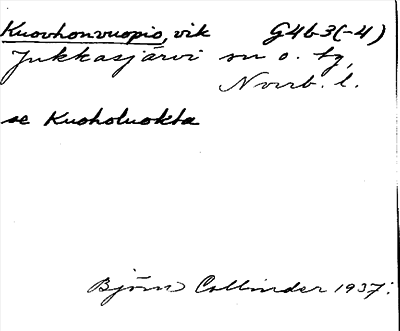 Kuovhonvuopio, vik G4b3(-4)
Jukkasjärvi sn o. tg,
Norrb. l.
se Kuoholuokta
Björn Collinder 1937.